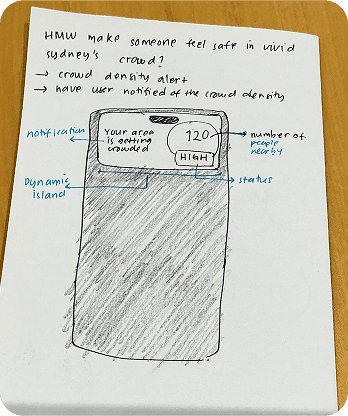 HMW make someone feel safe in vivid
sydney's crowd?
→ crowd density alert
→ have user notified of the crowd density
notification
Your area
is getting
crowded
120
HIGH
number of
people
nearby
Dynamic
island
status